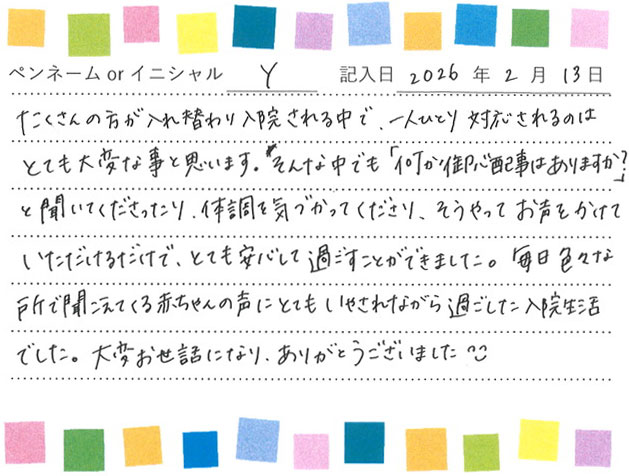 ペンネーム or イニシャル Y 記入日 2026 年 2 月 13 日
たくさんの方が入れ替わり入院される中で、一人ひとり対応されるのは
とても大変な事と思います。そんな中でも「何か御心配事はありますか?」
と聞いてくださったり、体調を気づかってくださり、そうやってお声をかけて
いただけるだけで、とても安心して過ごすことができました。毎日色々な
所で聞こえてくる赤ちゃんの声にとてもいやされながら過ごした入院生活
でした。大変お世話になり、ありがとうございました